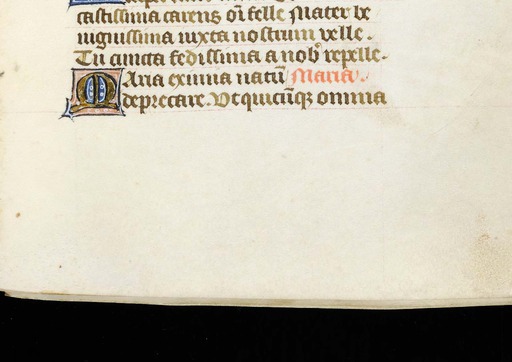 castissima carens oī felle Mater be
nignissima iuxta nostrum velle.
Tu cuncta fedissima a nob᷒ repelle.
Maria eximia natū Maria.
deprecare. Vt quicūqꝫ omnia